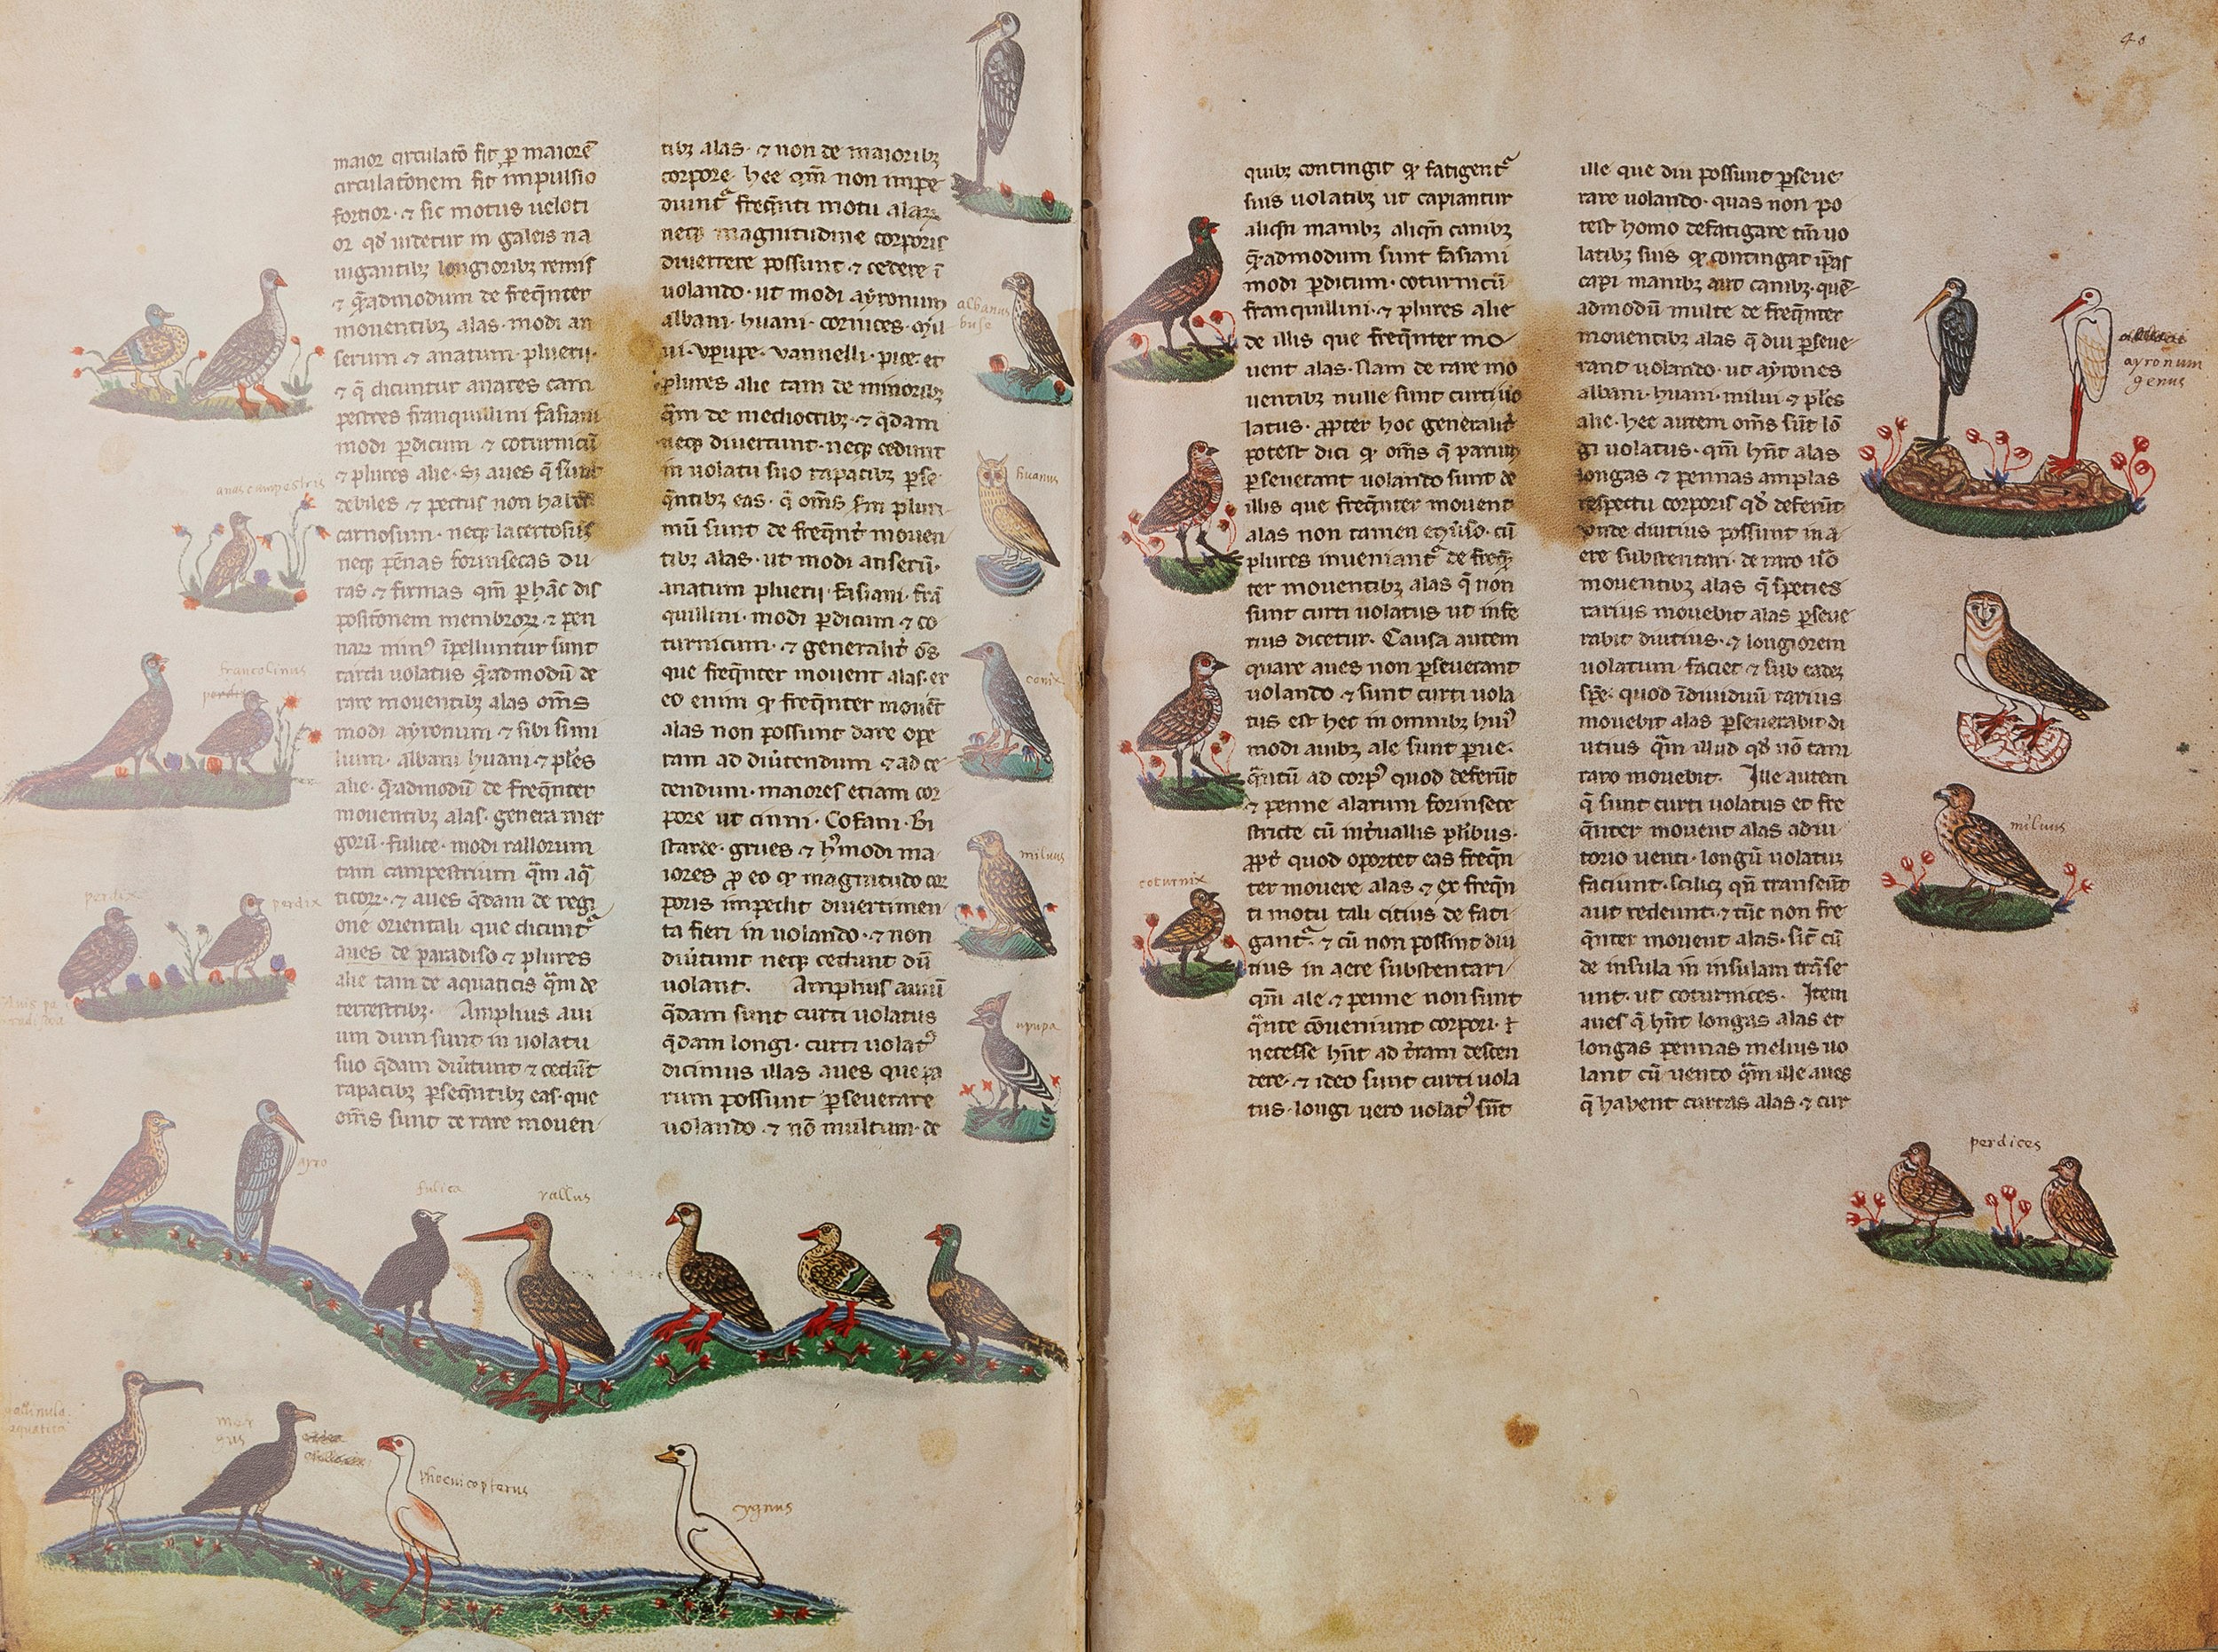 maior circulatō fit ꝑ maiorē
circulatōnem fit impulsio
fortior· ⁊ sic motus ueloti
or qď uidetur in galeis na
uigantibꝫ longioribꝫ remis
⁊ q̄admodum de freq̄nter
mouentibꝫ alas· modi an
serum ⁊ anatum· pluerii·
⁊ q̄ dicuntur anates cam
pestres franquillini fasiani
modi ꝑdicum ⁊ coturnicū
⁊ plures alie· Sꝫ aues q̄ sunt
debiles ⁊ pectus non habēt
carnosum· neqꝫ lacertosus
neqꝫ pēnas forinsecas du
ras ⁊ firmas qm̄ ꝑ hāc dis
positōnem membroꝝ ⁊ pen
naꝝ minꝰ īpelluntur sunt
tardi uolatus q̄admodū de
rare mouentibꝫ alas om̄s
modi ayronum ⁊ sibi simi
lium· albani huani ⁊ pl̄es
alie· q̄admodū de freq̄nter
mouentibꝫ alas· genera mer
gorū· fulice· modi rallorum
tam campestrium q̄m aq̄
ticoꝝ· ⁊ aues q̄dam de regi
one orientali que dicunt᷑
aues de paradiso ⁊ plures
alie tam de aquaticis q̄m de
terrestribꝫ· Amplius aui
um dum sunt in uolatu
suo q̄dam diūtunt ⁊ cedūt
rapacibꝫ ꝑseq̄ntibꝫ eas· que
om̄s sunt de rare mouen
tibꝫ alas· ⁊ non de maioribꝫ
corpore· hee qm̄ non impe
diunt᷑ freq̄nti motu alaꝝ
neqꝫ magnitudine corporis
diuertere possunt ⁊ cedere ī
uolando· ut modi ayronum
albani· huani· cornices· mil
ui· vpupe· vannelli· pice· et
plures alie tam de minoribꝫ
q̄m de mediocribꝫ· ⁊ q̄dam
neqꝫ diuertunt· neqꝫ cedunt
in uolatu suo rapacibꝫ ꝑse
q̄ntibꝫ eas· q̄ om̄s sm̄ pluri
mū sunt de freq̄nt᷑ mouen
tibꝫ alas· ut modi anserū·
anatum pluerii· fasiani· frā
quillini· modi ꝑdicum ⁊ co
turnicum· ⁊ generalit᷑ om̄s
que freq̄nter mouent alas· ex
eo enim qꝫ freq̄nter mouēt
alas non possunt dare ope
ram ad diūtendum ⁊ ad ce
dendum· maiores etiam cor
pore ut cinni· Cofani· Bi
starde· grues ⁊ hꝰmodi ma
iores ꝓ eo qꝫ magnitudo cor
poris impedit diuertimen
ta fieri in uolando· ⁊ non
diūtunt neqꝫ cedunt dū
uolant· Amplius auiū
q̄dam sunt curti uolatus
q̄dam longi· curti uolatꝰ
dicimus illas aues que pa
rum possunt ꝑseuerare
uolando ⁊ nō multum· de
anas campestris
francolinus
perdix
perdix
perdix
ayro
fulica
rallus
gallinula
aquatica
mer
gus
phoenicopterus
cygnus
albanus
buse
huanus
cornix
miluus
upupa
48
quibꝫ contingit qꝫ fatigent᷑
suis uolatibꝫ ut capiantur
aliqn̄ manibꝫ aliqn̄ canibꝫ
q̄admodum sunt fasiani
modi ꝑdicum· coturnicū
franquillini· ⁊ plures alie
de illis que freq̄nter mo
uent alas· Nam de rare mo
uentibꝫ nulle sunt curti uo
latus· ꝓpter hoc generalit᷑
potest dici qꝫ om̄s q̄ parum
ꝑseuerant uolando sunt de
illis que freq̄nter mouent
alas non tamen eq̄ūso· cū
plures inueniant᷑ de freq̄
ter mouentibꝫ alas q̄ non
sunt curti uolatus ut infe
rius dicetur· Causa autem
quare aues non ꝑseuerant
uolando ⁊ sunt curti uola
tus est hec in omnibꝫ huiꝰ
modi auibꝫ ale sunt ꝑue·
q̄ntū ad corpꝰ quod deferūt
⁊ penne alarum forinsece
stricte cū int᷑uallis pl̄ibus·
ꝓpt᷑ quod oportet eas freq̄n
ter mouere alas ⁊ ex freq̄n
ti motu tali citius de fati
gant᷑· ⁊ cū non possint diu
tius in aere substentari
qm̄ ale ⁊ penne non sunt
q̄nte cōueniunt corpori· ⁊
necesse hn̄t ad t᷑ram descen
dere· ⁊ ideo sunt curti uola
tus· longi uero uolatꝰ sūt
coturnix
ille que diu possunt ꝑseue
rare uolando· quas non po
test homo defatigare cū uo
latibꝫ suis qꝫ contingat ip̄as
capi manibꝫ aut canibꝫ· quē
admodū multe de freq̄nter
mouentibꝫ alas q̄ diu ꝑseue
rant uolando· ut ayrones
albani· huani· milui ⁊ pl̄es
alie· hee autem om̄s sūt lō
gi uolatus· qm̄ hn̄t alas
longas ⁊ pennas amplas
respectu corporis qď deferūt
vnde diutius possunt in a
ere substentari· de raro u͛o
mouentibꝫ alas q̄ species
rarius mouebit alas ꝑseue
rabit diutius· ⁊ longiorem
uolatum faciet ⁊ sub eadeꝫ
sp̄e· quod īdiuiduū rarius
mouebit alas ꝑseuerabit di
utius q̄m illud qď nō tam
raro mouebit· Ille autem
q̄ sunt curti uolatus et fre
q̄nter mouent alas adiu
torio uenti· longū uolatuꝫ
faciunt· scilicꝫ qn̄ transeūt
aut redeunt· ⁊ tūc non fre
q̄nter mouent alas· sic᷑ cū
de insula in insulam trāse
unt· ut coturnices· Item
aues q̄ hn̄t longas alas et
longas pennas melius uo
lant cū uento q̄m ille aues
q̄ habent curtas alas ⁊ cur
ayronum
genus
miluus
perdices